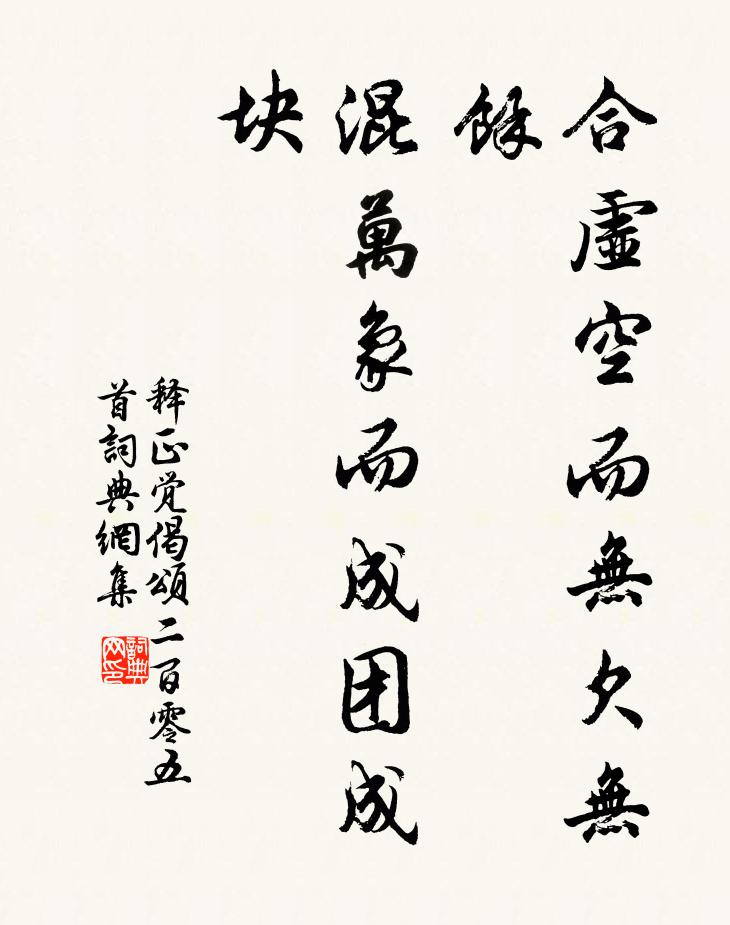 合虛空而無欠無
餘
混萬象而成团成
块
释正觉偈頌二百零五
首詞典網集
詞典
网印